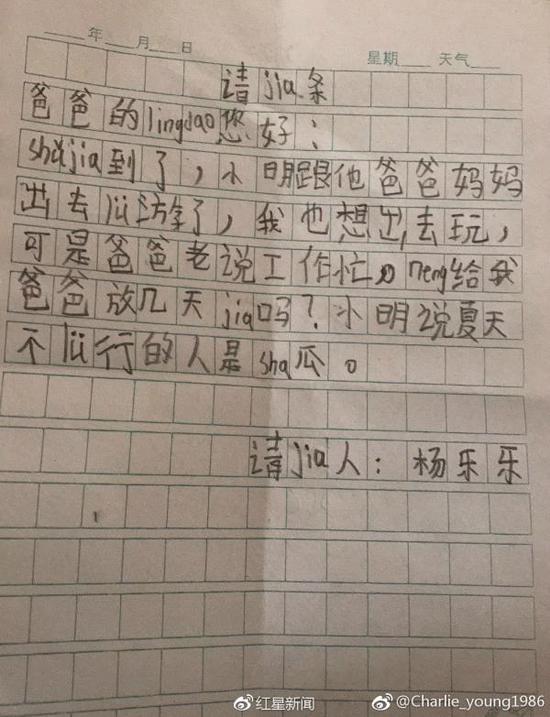 ____年____月____日 星期____ 天气____
请jia条
爸爸的lingdao您好：
shǔjia到了，小明跟他爸爸妈妈
出去lü游了，我也想出去玩，
可是爸爸老说工作忙，neng给我
爸爸放几天jia吗？小明说夏天
不lü行的人是sha瓜。
请jia人：杨乐乐
红星新闻 @Charlie_young1986